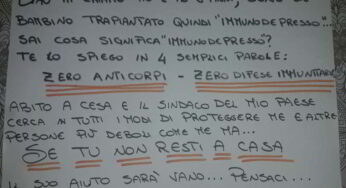 SONO UN
BAMBINO TRAPIANTATO QUINDI "IMMUNODEPRESSO"...
SAI COSA SIGNIFICA "IMMUNODEPRESSO"?
TE LO SPIEGO IN 4 SEMPLICI PAROLE:
ZERO ANTICORPI - ZERO DIFESE IMMUNITARIE
ABITO A CESA E IL SINDACO DEL MIO PAESE
CERCA IN TUTTI I MODI DI PROTEGGERE ME E ALTRE
PERSONE PIÙ DEBOLI COME ME MA...
SE TU NON RESTI A CASA
IL SUO AIUTO SARÀ VANO... PENSACI...